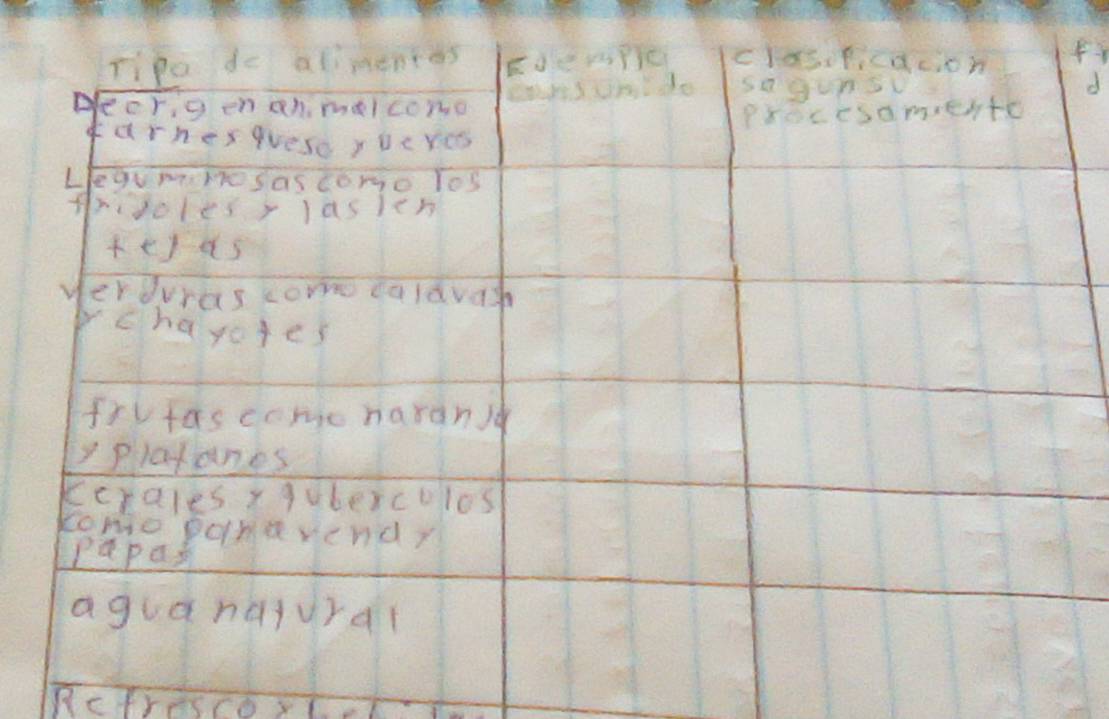 Tipo de alimentos
Ejemplo
consumido
clasificacion
segun su
procesamiento
De origen animal como
carnes queso y uevos
Leguminosas como los
frijoles y las len
tejas
verduras como calavasa
y chayotes
frutas como naranja
y platanos
cerales y tuberculos
como pan avena y
papas
agua natural
Refresco y